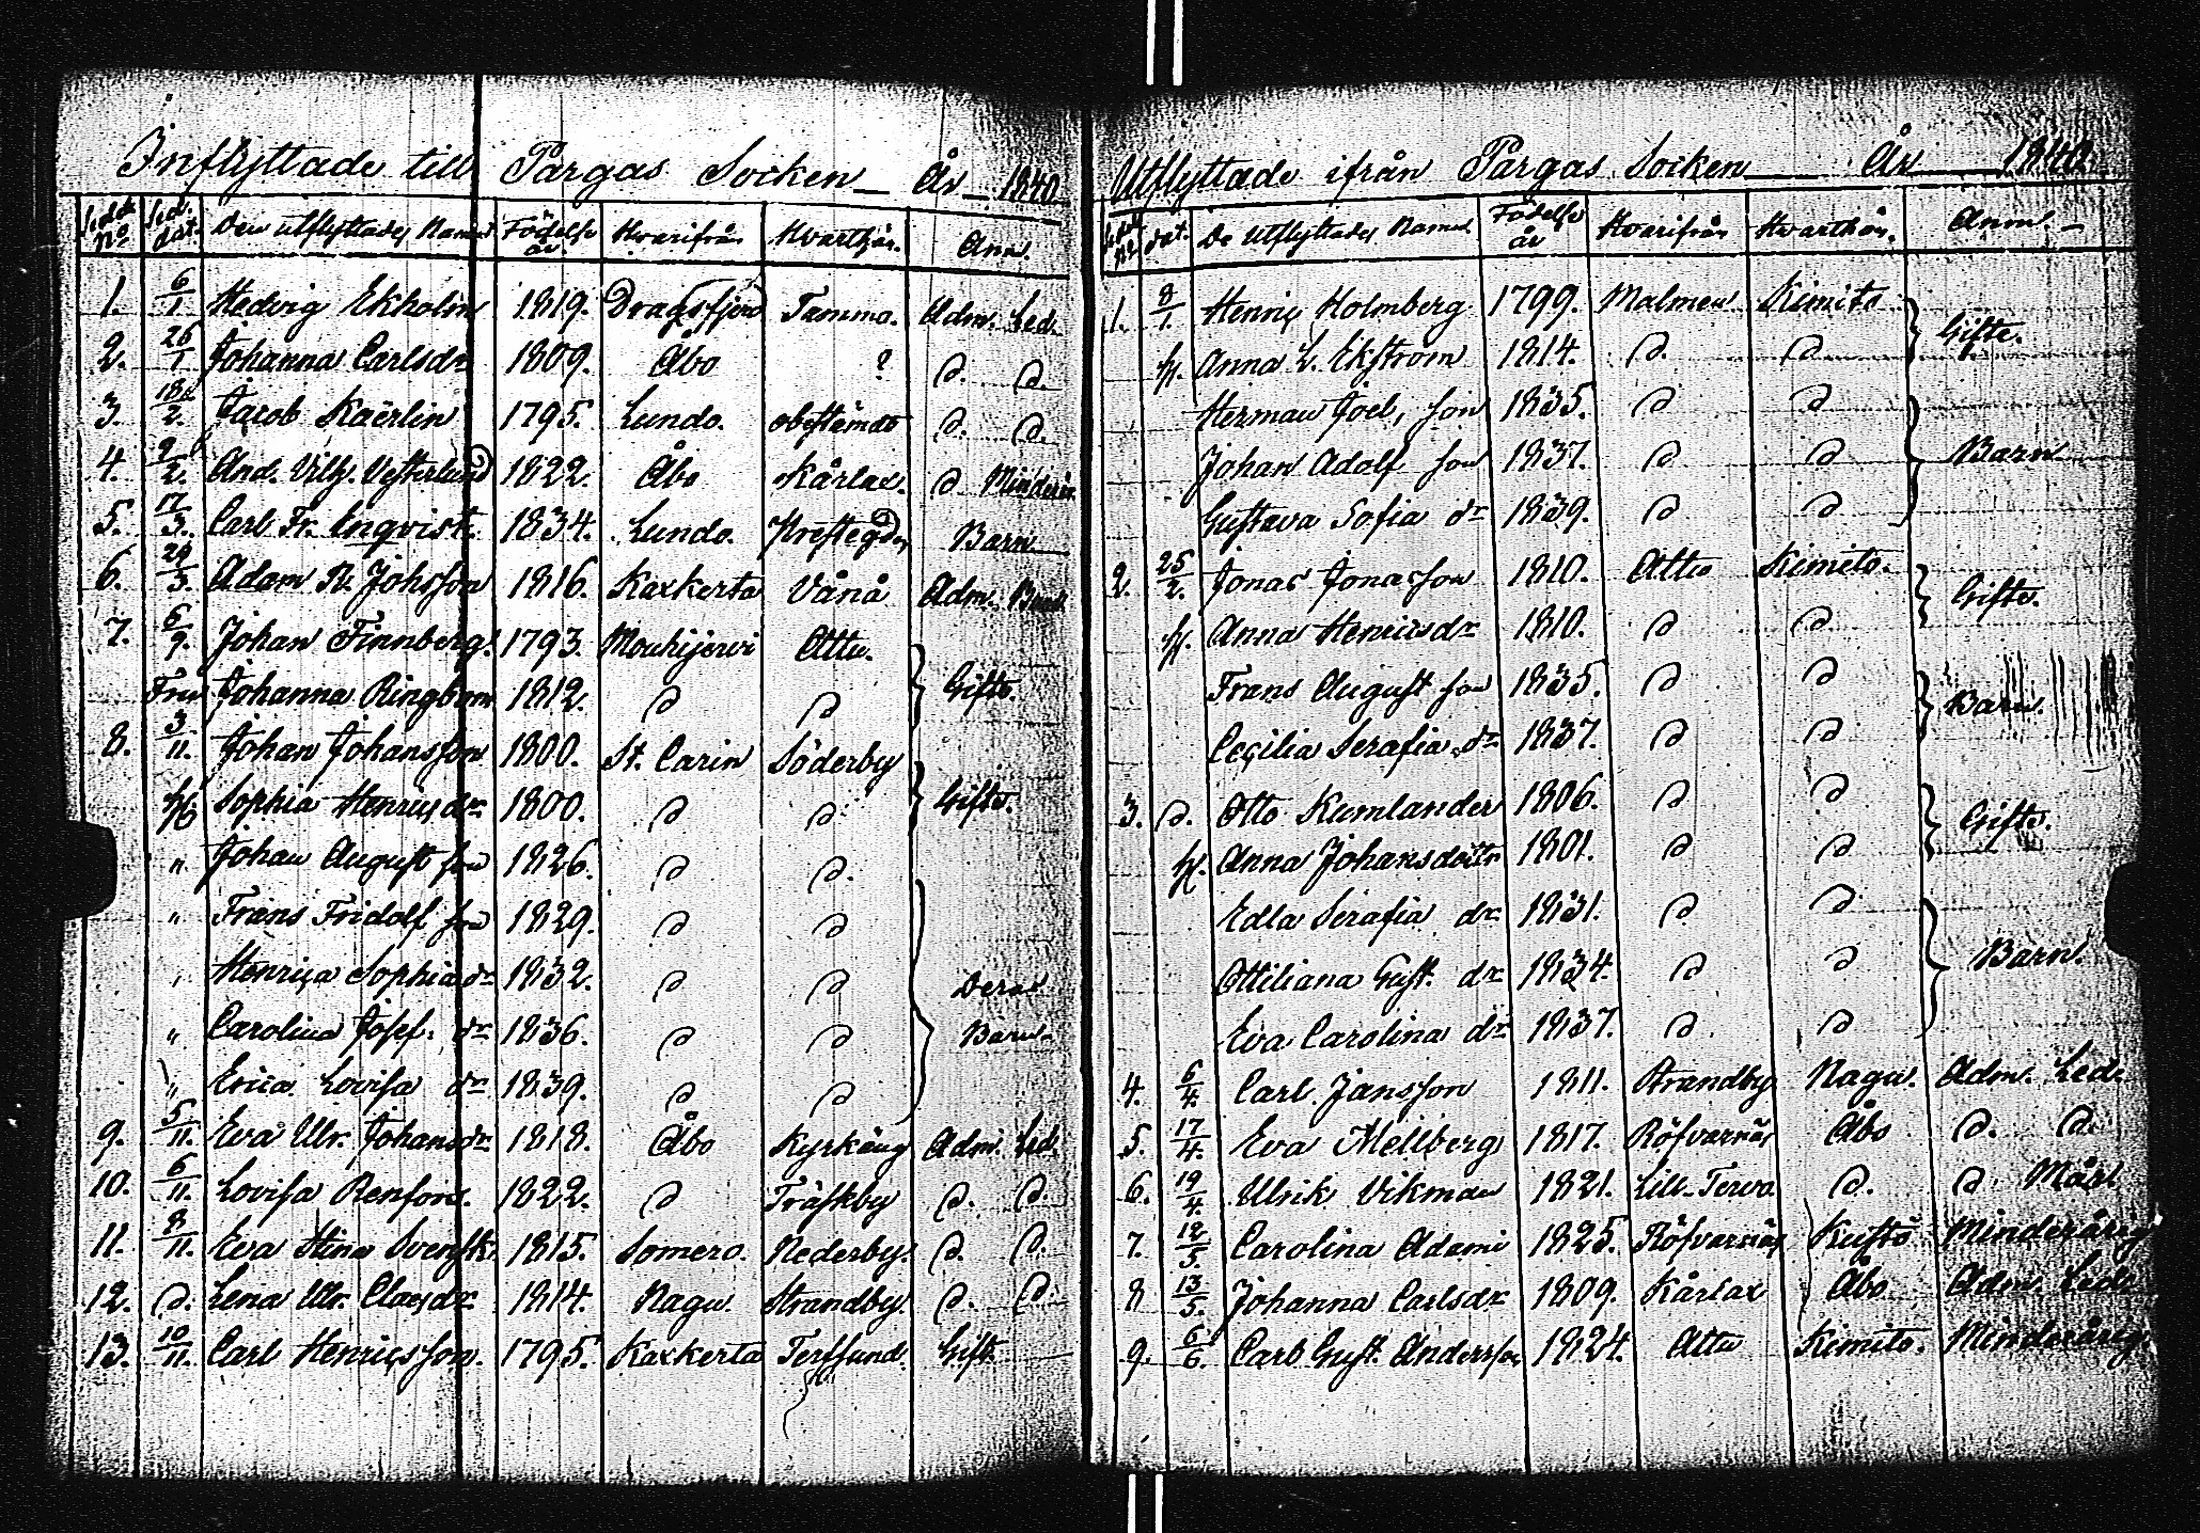 Inflyttade till Pargas Socken År 1840
Sedel No. Sed. dat. Den utflyttades Namn Födelse år. Hvarifrån Hvarthän. Anm.
1. 6/1 Hedvig Ekholm 1819. Dragsfjerd Tammo. Adm. Led.
2. 26/1 Johanna Carlsdr 1809. Åbo ? d. d.
3. 18/2. Jacob Kaerlin 1795. Lundo. obestämdt d. d.
4. 9/2. And. Vilh. Vesterlund 1822. Åbo Kårlax. d Minderår
5. 17/3. Carl Fr. Enqvist. 1834. Lundo. Prestegården Barn
6. 29/3. Adam R. Johsson 1816. Kaxkerta Vånå Adm.
7. 6/9. Johan Finnberg. 1793. Mouhijervi Attu.
Fru Johanna Ringbom 1812. d d Gifte.
8. 3/11. Johan Johansson 1800. St. Carin Söderby
h. Sophia Henricsdr 1800. d d. Gifte.
" Johan August son 1826. d d.
" Frans Fridolf son 1829. d d
" Henrica Sophia dr 1832. d d Deras
" Carolina Josef. dr 1836. d d Barn
" Erica Lovisa dr 1839. d d
9. 5/11. Eva Ulr. Johansdr 1818. Åbo Kyrkäng Adm. Led.
10. 6/11. Lovisa Renfors. 1822. d Träskby d. d.
11. 8/11. Eva Stina Svensk. 1815. Somero. Nederby. d. d.
12. d. Lena Ulr. Claesdr. 1814. Nagu. Strandby. d. d.
13. 10/11. Carl Henricsson. 1795. Kaxkerta Terfsund. Gift.
Utflyttade ifrån Pargas Socken År 1840.
Sedel No. dat. De Utflyttades Namn Födelse år Hvarifrån Hvarthän. Anm.
1. 8/1. Henric Holmberg 1799. Malmen Kimito
h. Anna L. Ekström 1814. d. d Gifte.
Herman Joel, son 1835. d d
Johan Adolf son 1837. d d Barn
Gustava Sofia dr 1839. d d
2. 25/2. Jonas Jonasson 1810. Attu Kimito.
h. Anna Henricsdr 1810. d d Gifte.
Frans August son 1835. d d
Cecilia Serafia dr 1837. d d Barn.
3. d. Otto Kumlander 1806. d d
h. Anna Johansdotter 1801. d d Gifte.
Edla Serafia dr. 1831. d d
Ottiliana Gust. dr 1834. d d Barn.
Eva Carolina dr 1837. d d
4. 6/4. Carl Jansson 1811. Strandby Nagu. Adm. Led.
5. 17/4. Eva Mellberg 1817. Röfvarnäs Åbo d. d.
6. 19/4. Ulrik Vikman 1821. Lill-Tervo d. d.
7. 12/5. Carolina Adami 1825. Röfvarnäs Kustö Minderårig
8 13/5. Johanna Carlsdr 1809. Kårlax Åbo Adm. Led.
9. 6/6. Carl Gust. Andersson 1824. Attu Kimito. Minderårig